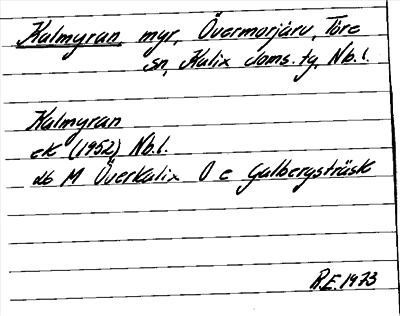 Kalmyran, myr, Övermorjärv, Töre
sn, Kalix doms. tg, Nb. l.
Kalmyran
ek (1952) Nb. l.
db M Överkalix O e Galbergsträsk
R.E. 1973